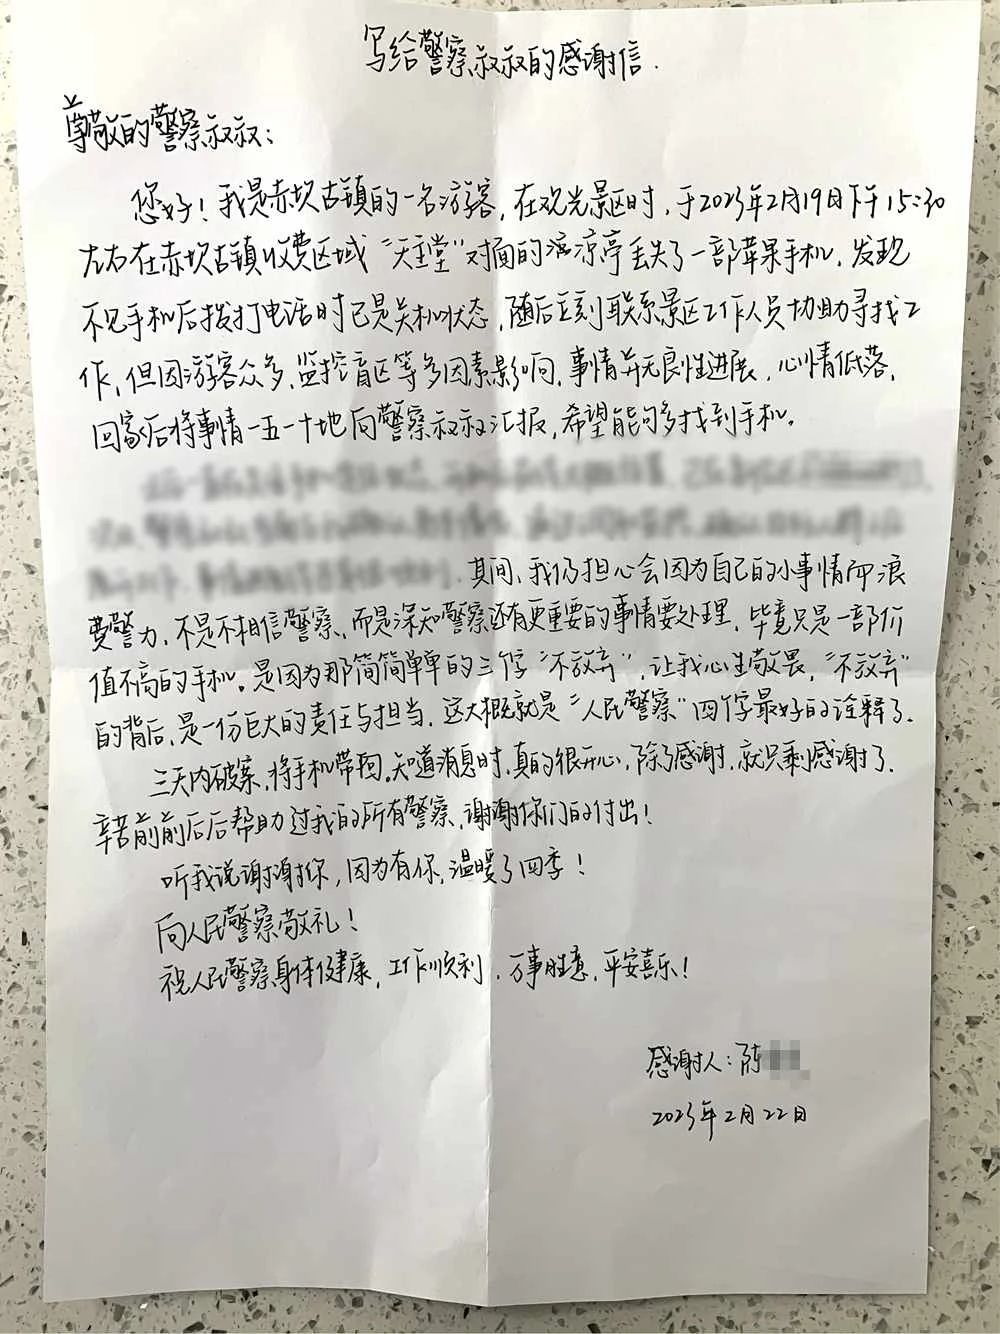 写给警察叔叔的感谢信.
尊敬的警察叔叔：
您好！我是赤坎古镇的一名游客，在观光景区时，于2023年2月19日下午15:30
左右在赤坎古镇收费区域“天主堂”对面的凉亭丢失了一部苹果手机，发现
不见手机后拨打电话时已是关机状态，随后立刻联系景区工作人员协助寻找工
作，但因游客众多，监控盲区等多因素影响，事情并无良性进展，心情低落，
回家后将事情一五一十地向警察叔叔汇报，希望能够多找到手机。
其间，我仍担心会因为自己的小事情而浪
费警力，不是不相信警察，而是深知警察还有更重要的事情要处理，毕竟只是一部价
值不高的手机。是因为那简简单单的三个字“不放弃”，让我心生敬畏，“不放弃”
的背后，是一份巨大的责任与担当，这大概就是“人民警察”四个字最好的诠释了.
三天内破案，将手机带回。知道消息时，真的很开心，除了感谢，就只剩感谢了.
辛苦前前后后帮助过我的所有警察，谢谢你们的付出！
听我说谢谢你，因为有你，温暖了四季！
向人民警察敬礼！
祝人民警察身体健康，工作顺利，万事胜意，平安喜乐！
感谢人：陈
2023年2月22日